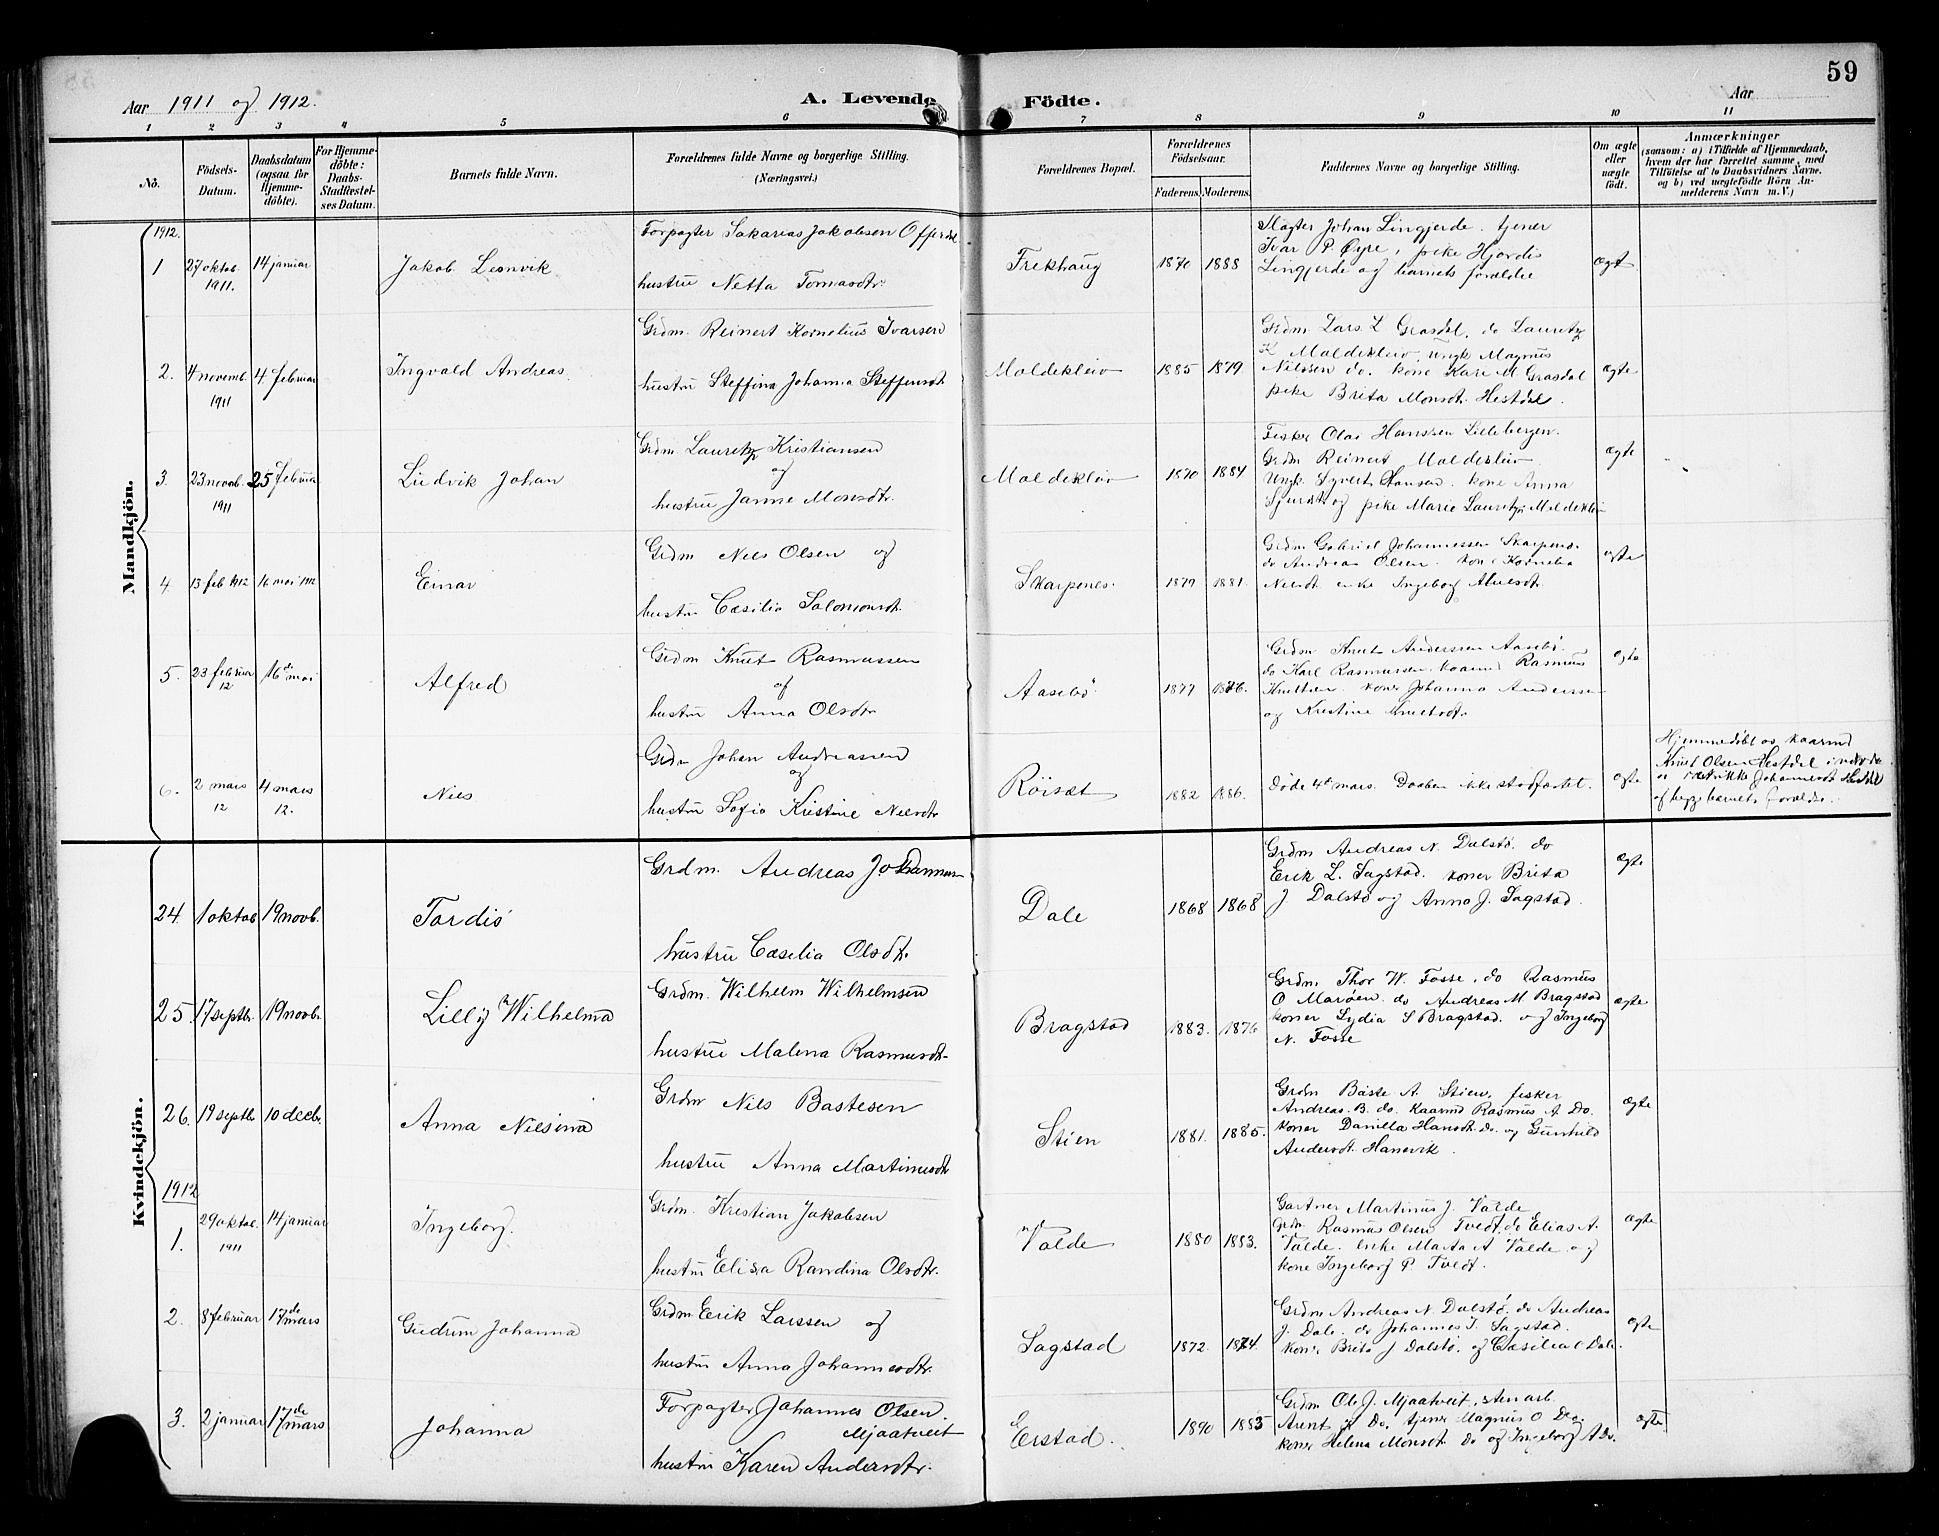 59
Aar 1911 og 1912.
A. Levende Födte.
Aar
1 2 3 4 5 6 7 8 9 10 11
No.
Födsels-
Datum.
Daabsdatum
(ogsaa for
Hjemme-
döbte).
For Hjemme-
döbte:
Daabs-
Stadfæstel-
ses Datum.
Barnets fulde Navn.
Forældrenes fulde Navne og borgerlige Stilling.
(Næringsvei.)
Forældrenes Bopæl.
Forældrenes
Födselsaar.
Faderens. Moderens.
Faddernes Navne og borgerlige Stilling.
Om ægte
eller
uægte
födt.
Anmærkninger
(saasom: a) i Tilfælde af Hjemmedaab,
hvem der har forrettet samme, med
Tilföielse af to Daabsvidners Navne.
og b) ved uægtefödte Börn An-
melderens Navn m.V.)
Mandkjön.
1912.
1
27 oktob.
1911.
14 januar
Jakob Leonvik
Forpagter Sakarias Jakobsen
hustru Netta Tomasdtr.
Frekhaug
1870 1888
Slagter Johan Lingjerde. tjener
Ivar P. Øyre, pike Hjørdis
Lingjerde og barnets forældre
Ægt
2.
4 novemb.
1911
4 februar
Ingvald Andreas.
Grdm. Reinert Kornelius Ivarsen
hustru Steffina Johanna Steffensdt
Moldekleiv
1885 1879
Grdm Lars L Grasdal, do Lauretz
K Moldekleiv, Ungk Magnus
Nilssen do. kone Kari M Grasdal
pike Brita Monsdt. Hestdal.
Ægte
3.
23 novb.
1911
25 februar
Ludvik Johan
Grdm. Lauretz Kristiansen
og
hustru Janne Monsdtr.
Moldekleiv
1870 1884
Fisker Olai Hanssen Lillebergen.
Grdm Reinert Moldekleiv
Ungk. Syvert Hansen. kone Anna
Sjursdt og pike Marie Lauretzr. Moldekleiv
Ægte
4
13 feb 1912
16 mai 1912
Einar
Grdm Nils Olsen og
hustru Cæsilia Salomonsdt.
Skarpenes.
1879 1881.
Grdm Gabriel Johannessen Skarpenes.
do Andreas Olsen. kone Kornelia
Nilsdt enke Ingeborg
Ægte
5.
23 februar
12
16de mai
Alfred
Grdm Knut Rasmussen
og
hustru Anna Olsdtr
Aasebø
1877 1876.
Grdm Knut Anderssen Aasebø.
do Karl Rasmussen. kaarmd Rasmus
Knutsen. koner Johanna Anderse
og Kristine Knutsdtr.
Ægte
6.
2 mars
12
4 mars
12.
Nils
Grdm Johan Andreassen
og
hustru Sofie Kristine Nilsdtr
Röisæt
1882 1886.
Döde 4de mars. Daaben ikke stadfæstet.
Ægte
Hjemmedöbt av kaarmd
Knut Olsen Hestdal
Johannesdt Hestdal
begge barnets forældre.
Kvindekjön.
24.
1 oktob
19 novb.
Tordis
Grdm. Andreas Johannessen
hustru Cæsilia Olsdtr.
Dale
1868 1868
Grdm Andreas N. Dalstø. do
Erik L. Sagstad. koner Brita
J. Dalstø og Anna J. Sagstad.
Ægte
25.
17 septbr.
19 novbr.
Lilly Wilhelma
Grdm. Wilhelm Wilhelmsen
hustru Malena Rasmusdtr
Bragstad
1883. 1876
Grdm. Thor W. Fosse, do Rasmus
O Marøen. do Andreas M Bragstad
koner Lydia S Bragstad. og Ingeborg
N. Fosse
Ægte
26.
19 septb.
10 decbr.
Anna Nilsina
Grdm Nils Bastesen
hustru Anna Martinusdt
Stien
1881. 1885.
Grdm Baste A. Stien, fisker
Andreas. B. do. kaarmd Rasmus A Do.
koner Danilla Hansdt. do. og Gunhild
Andersdt. Hanevik.
Ægte
1912
1.
29 oktob.
1911
14 januar
Ingeborg.
Grdm. Kristian Jakobsen
hustru Elisa Randina Olsdtr.
Valde
1880 1883.
Gartner Martinus J. Valde
Grdm. Rasmus Olsen Tvedt. do Elias A.
Valde. enke Marta A Valde og
kone Ingeborg P. Tvedt.
Ægte
2.
8 februar
17de mars
Gudrun Johanna
Grdm Erik Larssen og
hustru Anna Johannesdtr.
Sagstad
1872. 1874.
Grdm Andreas N. Dalstø. do Andreas
J. Dale. do Johannes J. Sagstad.
koner Brita J Dalstø. og Cæsilia O Dale.
Ægte
3.
2 januar
17de mars
Johanna
Forpagter Johannes Olsen.
Mjaatveit
hustru Karen Andersdtr.
Eistad.
1890 1885
Grdm Ole J. Mjaatveit, stenarb.
Arent J. Do. tjener Magnus O Do.
koner Helena Monsdt. do og Ingeborg A Do.
Ægte